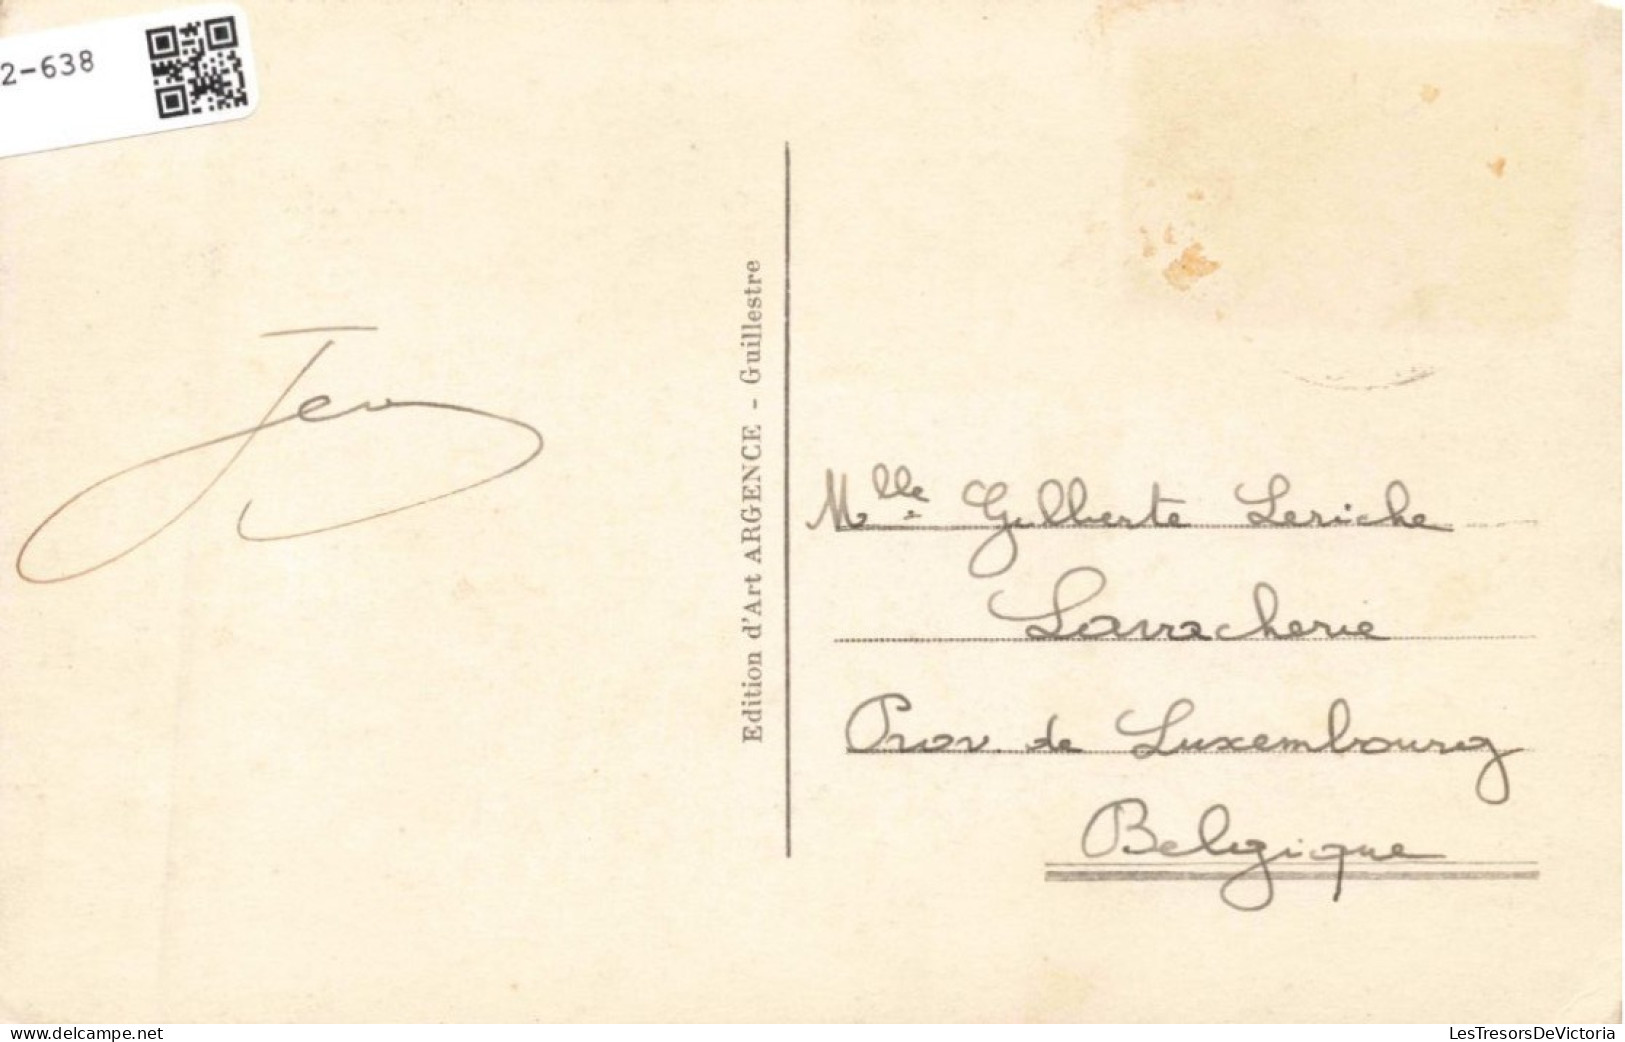 2-638
Edition d'Art ARGENCE - Guillestre
Mlle Gilberte Leriche
Lavacherie
Prov. de Luxembourg
Belgique
www.delcampe.net
LesTresorsDeVictoria